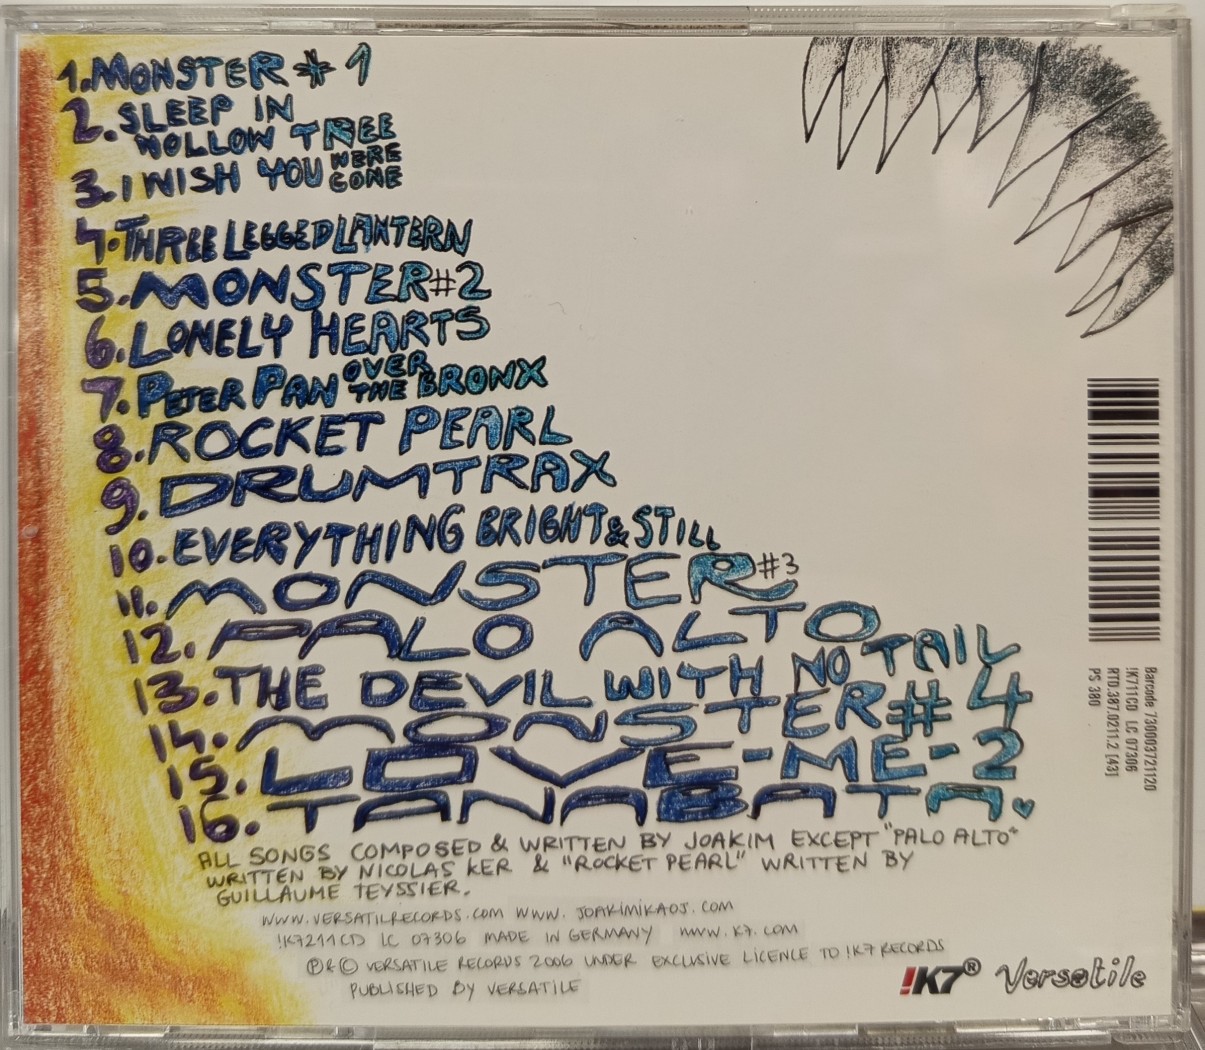 1. MONSTER # 1
2. SLEEP IN
HOLLOW TREE
3. I WISH YOU WERE GONE
4. THREE LEGGED LANTERN
5. MONSTER #2
6. LONELY HEARTS
7. PETER PAN OVER THE BRONX
8. ROCKET PEARL
9. DRUMTRAX
10. EVERYTHING BRIGHT & STILL
11. MONSTER #3
12. PALO ALTO
13. THE DEVIL WITH NO TAIL
14. MONSTER # 4
15. LOVE-ME-2
16. TANABATA
ALL SONGS COMPOSED & WRITTEN BY JOAKIM EXCEPT "PALO ALTO"
WRITTEN BY NICOLAS KER & "ROCKET PEARL" WRITTEN BY
GUILLAUME TEYSSIER.
WWW.VERSATILRECORDS.COM WWW.JOAKIMIKAOJ.COM
!K7211CD LC 07306 MADE IN GERMANY WWW.K7.COM
℗ & © VERSATILE RECORDS 2006 UNDER EXCLUSIVE LICENCE TO !K7 RECORDS
PUBLISHED BY VERSATILE
!K7® Versatile
Barcode 730003721120
!K711CD LC 07306
RTD.387.0211.2 [43]
PS 380